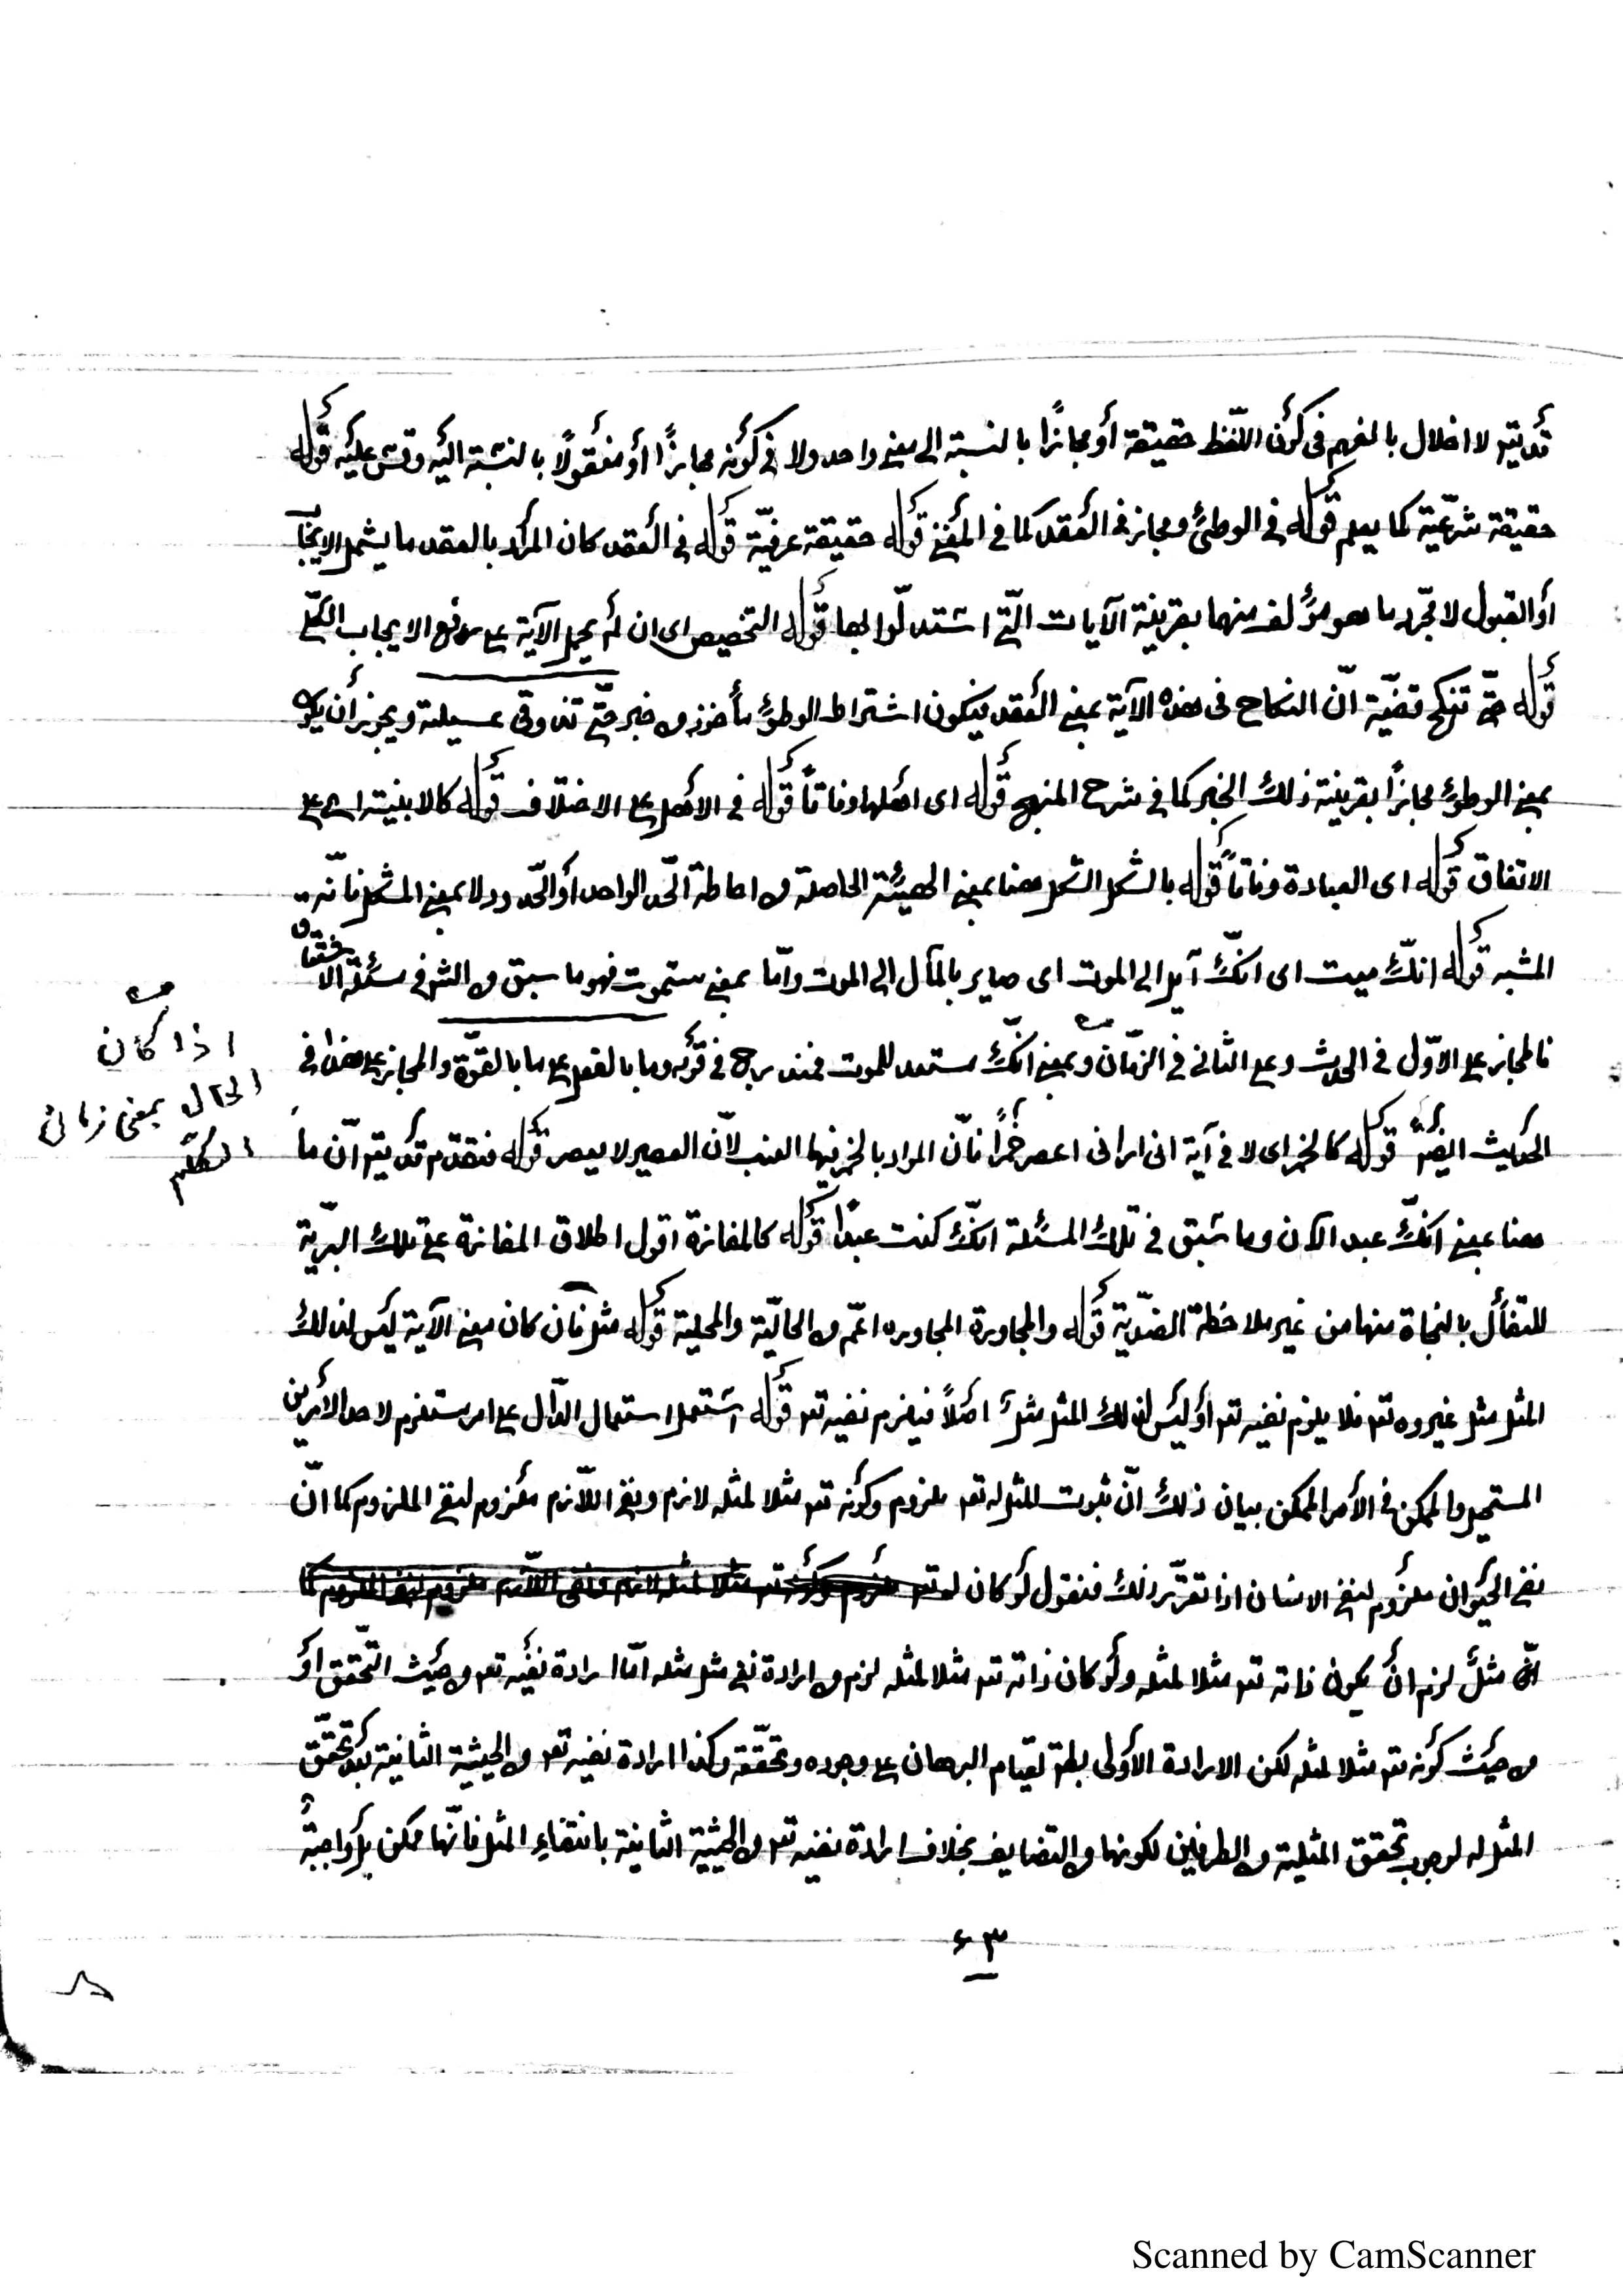 قد يتم لا اخلال بالفهم فى كون اللّفظ حقيقة أو مجازًا بالنسبة الى معنى واحد ولا فى كونه مجازًا أو منقولًا بالنسبة اليه وقس عليه قوله
حقيقة شرعيّة كما يعلم قوله فى الوطئ ومجاز فى العقد كما فى المغنى قوله حقيقة عرفيّة قوله فى العقد كان المراد بالعقد ما يشمل الايجاب
أو القبول لا مجّرد ما هو مؤلف منهما بقرينة الآيات الّتى استدلّوا بها قوله التخصيص اى ان لم يحمل الآية على رفع الايجاب الكلّى
قوله حتّى تنكح قضيّة انّ النكاح فى هذه الآية بمعنى العقد فيكون اشتراط الوطئ مأخوذ من خبر حتّى تذوقى عسيلته ويجوز أن يكون
بمعنى الوطئ مجازًا بقرينة ذلك الخبر كما فى شرح المنهج قوله اى اهلها وفاقًا قوله فى الأصل على الاختلاف قوله كالابنية اى على
الاتفاق قوله اى العبادة وفاقًا قوله بالشكل الشكل هنا بمعنى الهيئة الحاصلة من احاطة الحّد الواحد أو الحّدود لا بمعنى المشكل فانّه
المشبه قوله انّك ميت اى انّك آيل الى الموت اى صاير بالمآل الى الموت وامّا بمعنى ستموت فهو ما سبق من الشر فى مسئلة الاشتقاق
فالمجاز على الاوّل فى الحدث وعلى الثانى فى الزمّان وبمعنى انّك مستعد للموت فمندرج فى قوله وما بالفعل على ما بالقوّة والمجاز على هذا فى
الحديث ايضًا قوله كالخمر اى لا فى آية انى ارانى اعصر خمرًا فانّ المراد بالخمر فيها العنب لانّ العصير لا يعصر قوله فتقدّم قد يتم انّ ما
هنا بمعنى انّك عبد الآن وما سبق فى تلك المسئلة انّك كنت عبدًا قوله كالمفازة اقول اطلاق المفازة على تلك البرّية
للتفأل بالنجاة منها من غير ملاحظة الضدّية قوله والمجاورة المجاوره اعمّ من الحاليّة والمحلية قوله مثل فان كان معنى الآية ليس لذلك
المثل مثل غيره تعـ فلا يلزم نفيه تعـ أو ليس لذلك المثل مثل اصلًا فيلزم نفيه تعـ قوله استعمل استعمال الدّال على امر مستلزم لاحد الأمرين
المستحيل والممكن فى الأمر الممكن بيان ذلك انّ ثبوت المثل له تعـ ملزوم وكونه تعـ مثلا لمثله لازم ونفى اللّازم ملزوم لنفى الملزوم كما انّ
نفى الحيوان ملزوم لنفى الانسان اذا تقرّر ذلك فنقول لو كان له تعـ
مثل لزم ان يكون ذاته تعـ مثلا لمثله ولو كان ذاته تعـ مثلا لمثله لزم من ارادة نفى مثل مثله امّا ارادة نفيه تعـ من حيث التّحقق أو
من حيث كونه تعـ مثلا لمثله لكن الارادة الأولى بطـ لقيام البرهان على وجوده وتحقّقه وكذا ارادة نفيه تعـ من الحيثية الثانية بعد تحقّق
المثل له لوجوب تحقق المثلية من الطرفين لكونها من التضايف بخلاف ارادة نفيه تعـ من الحيثية الثانية بانتفاء المثل فانّها ممكن بل واجبة
اذا كان
الحال بمعنى زمان
التكلّم
٦٣
Scanned by CamScanner